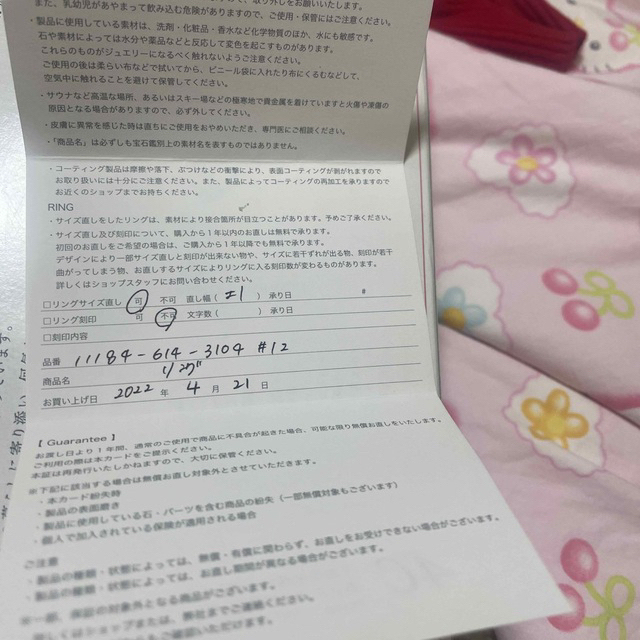 また、乳幼児があやまって飲み込む危険がありますので、ご使用・保管にはご注意ください。
・製品に使用している素材は、洗剤・化粧品・香水など化学物質のほか、水にも敏感です。
石や素材によっては水分や薬品などと反応して変色を起こすものがあります。
これらのものがジュエリーになるべく触れないようご注意ください。
ご使用の後は柔らかい布などで拭いてから、ビニール袋に入れたり布にくるむなどして、
空気中に触れることを避けて保管してください。
・サウナなど高温な場所、あるいはスキー場などの極寒地で貴金属を着けていますと火傷や凍傷の
原因となる場合がありますので、必ず外してください。
・皮膚に異常を感じた時は直ちにご使用をおやめいただき、専門医にご相談ください。
・「商品名」は必ずしも宝石鑑別上の素材名を表すものではありません。
・コーティング製品は摩擦や落下、ぶつけなどの衝撃により、表面コーティングが剥がれますので
お取り扱いには十分にご注意ください。また、製品によってコーティングの再加工を承りますので
お近くのショップまでお持ちください。
RING
・サイズ直しをしたリングは、素材により接合箇所が目立つことがあります。予めご了承ください。
・サイズ直し及び刻印について、購入から1年以内のお直しは無料で承ります。
初回のお直しをご希望の場合は、ご購入から1年以降でも無料で承ります。
デザインにより一部サイズ直しと刻印が出来ない物や、サイズに若干ずれが出る物、刻印が若干
曲がってしまう物、お直しするサイズによりリングに入る刻印数が変わるものがあります。
詳しくはショップスタッフにお問い合わせください。
□リングサイズ直し 可 不可 直し幅( ±1 ) 承り日 #
□リング刻印 可 不可 文字数( ) 承り日
□刻印内容
品番 11184-614-3104 #12
商品名 リング
お買い上げ日 2022 年 4 月 21 日
【 Guarantee 】
お渡し日より1年間、通常のご使用で商品に不具合が起きた場合、可能な限り無償お直しをいたします。
ご利用の際は本カードをご提示ください。
本証は再発行いたしかねますので、大切に保管ください。
※下記に該当する場合は無償お直し対象外とさせていただきます。
・本カード紛失時
・製品の表面磨き
・製品に使用している石・パーツを含む商品の紛失(一部無償対象もございます)
・個人で加入されている保険が適用される場合
ご注意
・製品の種類・状態によっては、無償・有償に関わらず、お直しをお受けできない場合がございます。
・製品の種類・状態によっては、お直し期間が異なる場合がございます。
※一部、保証の対象外となる商品がございます。
詳しくはショップまたは、弊社までご連絡ください。